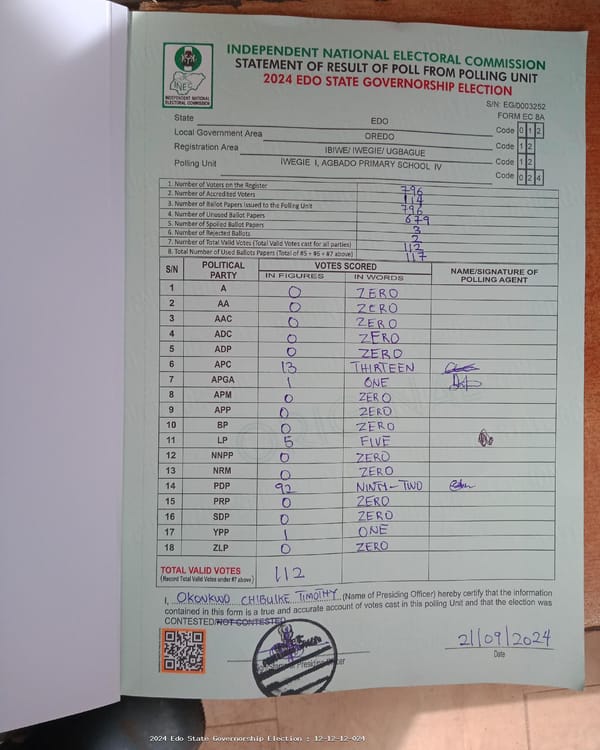 INEC
INDEPENDENT NATIONAL ELECTORAL COMMISSION
INDEPENDENT NATIONAL ELECTORAL COMMISSION
STATEMENT OF RESULT OF POLL FROM POLLING UNIT
2024 EDO STATE GOVERNORSHIP ELECTION
S/N: EG/0003252
FORM EC 8A
State EDO Code 0 1 2
Local Government Area OREDO Code 1 2
Registration Area IBIWE/ IWEGIE/ UGBAGUE Code 1 2
Polling Unit IWEGIE I, AGBADO PRIMARY SCHOOL IV Code 0 2 4
1. Number of Voters on the Register 796
2. Number of Accredited Voters 114
3. Number of Ballot Papers Issued to the Polling Unit 796
4. Number of Unused Ballot Papers 679
5. Number of Spoiled Ballot Papers 3
6. Number of Rejected Ballots 2
7. Number of Total Valid Votes (Total Valid Votes cast for all parties) 112
8. Total Number of Used Ballots Papers (Total of #5 + #6 + #7 above) 117
S/N POLITICAL PARTY VOTES SCORED NAME/SIGNATURE OF POLLING AGENT
IN FIGURES IN WORDS
1 A 0 ZERO
2 AA 0 ZERO
3 AAC 0 ZERO
4 ADC 0 ZERO
5 ADP 0 ZERO
6 APC 13 THIRTEEN
7 APGA 1 ONE
8 APM 0 ZERO
9 APP 0 ZERO
10 BP 0 ZERO
11 LP 5 FIVE
12 NNPP 0 ZERO
13 NRM 0 ZERO
14 PDP 92 NINTY-TWO
15 PRP 0 ZERO
16 SDP 0 ZERO
17 YPP 1 ONE
18 ZLP 0 ZERO
TOTAL VALID VOTES 112
(Record Total Valid Votes under #7 above)
I, OKONKWO CHIBUIKE TIMOTHY (Name of Presiding Officer) hereby certify that the information
contained in this form is a true and accurate account of votes cast in this polling Unit and that the election was
CONTESTED/NOT CONTESTED
Presiding Officer
21/09/2024
Date
2024 Edo State Governorship Election : 12-12-12-024